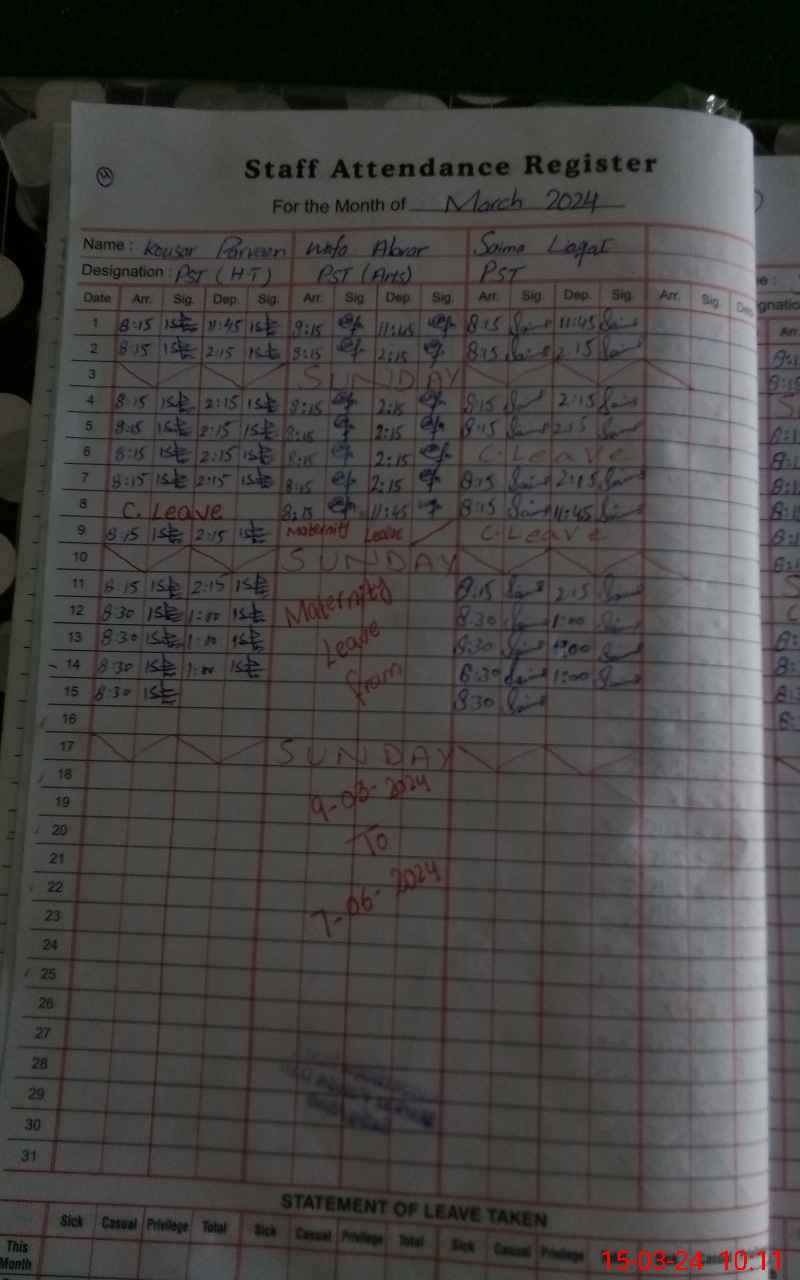 Staff Attendance Register
For the Month of March 2024
Name : Kousar Parveen Wafa Abrar Saima Liaqat
Designation : PST (H.T) PST (Arts) PST
Date Arr. Sig. Dep. Sig. Arr. Sig. Dep. Sig. Arr. Sig. Dep. Sig. Arr. Sig. Dep
1 8:15 11:45 8:15 11:45 8:15 11:45
2 8:15 2:15 8:15 2:15 8:15 2:15
3 SUNDAY
4 8:15 2:15 8:15 2:15 8:15 2:15
5 8:15 2:15 8:15 2:15 8:15 2:15
6 8:15 2:15 8:15 2:15 C. Leave
7 8:15 2:15 8:15 2:15 8:15 2:15
8 C. Leave 8:15 11:45 8:15 11:45
9 8:15 2:15 Maternity Leave C. Leave
10 SUNDAY
11 8:15 2:15 Maternity 8:15 2:15
12 8:30 1:00 8:30 1:00
13 8:30 1:00 Leave 8:30 1:00
14 8:30 1:00 from 8:30 1:00
15 8:30 8:30
16
17 SUNDAY
18
19 9-03-2024
20 To
21
22 7-06-2024
23
24
25
26
27
28
29
30
31
STATEMENT OF LEAVE TAKEN
Sick Casual Privilege Total Sick Casual Privilege Total Sick Casual Privilege
This Month
15-03-24 10:11